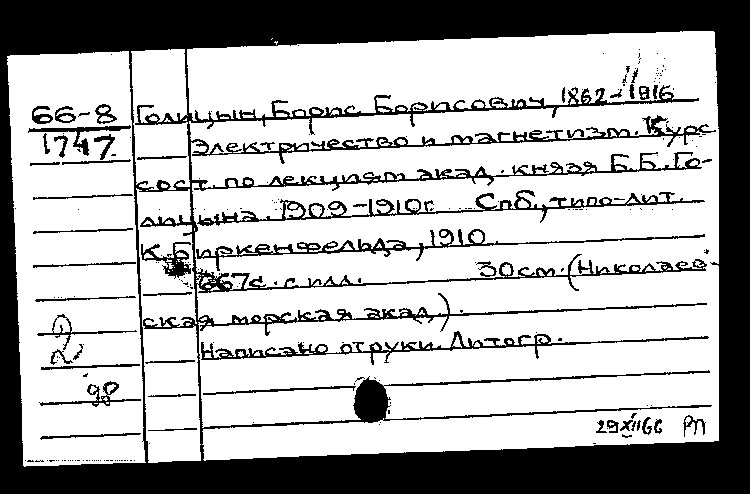 66-8
1747
Голицын, Борис Борисович, 1862-1916
Электричество и магнетизм. Курс
сост. по лекциям акад. князя Б.Б. Го-
лицына. 1909-1910г. Спб., типо-лит.
К. Биркенфельда, 1910.
667с. с илл. 30см. (Николаев-
ская морская акад.).
Написано от руки. Литогр.
2
98
29XII66 РП